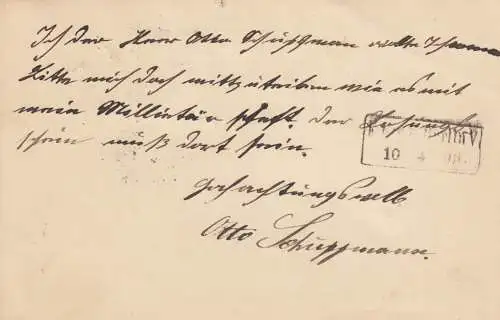 Ich der Herr Otto Schüppman
Bitte mich doch mitzuteilen wie es mit
mein Millitär schaft. der
schein muß dort sein.
Hochachtungsvoll
Otto Schüppmann.
10 4